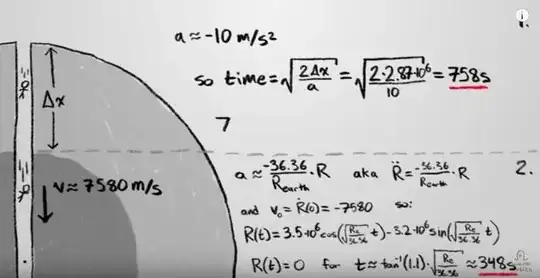 a ≈ -10 m/s²
so time = √(2Δx/a) = √(2·2.87·10⁶/10) = 758s
Δx
7
v ≈ 7580 m/s
a ≈ -36.36/Rearth · R aka R̈ = -36.36/Rearth · R
2.
and v₀ = Ṙ(0) = -7580 so:
R(t) = 3.5·10⁶ cos(√(Re/36.36) t) - 3.2·10⁶ sin(√(Re/36.36) t)
R(t) = 0 for t ≈ tan⁻¹(1.1)·√(Re/36.36) ≈ 348s